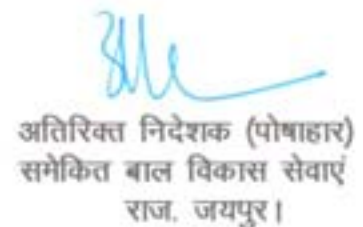 अतिरिक्त निदेशक (पोषाहार)
समेकित बाल विकास सेवाएं
राज. जयपुर।